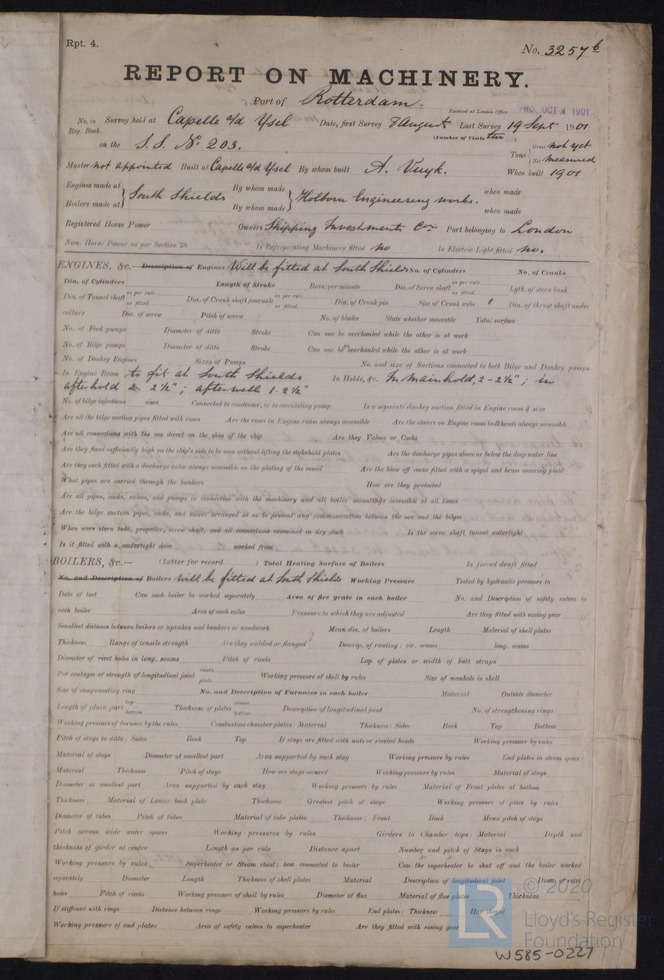 Rpt. 4.
No. 3257b
REPORT ON MACHINERY.
Port of Rotterdam
Received at London Office OCT 4 1901
No. in Survey held at Capelle a/d Ysel Date, first Survey 8 August Last Survey 19 Sept 1901
Reg. Book. (Number of Visits
on the S.S. No. 203. Tons Gross not yet Net measured
Master not appointed Built at Capelle a/d Ysel By whom built A. Vuyk. When built 1901
Engines made at South Shields By whom made Holborn Engineering works. when made
Boilers made at By whom made when made
Registered Horse Power Owners Shipping Investments Co. Port belonging to London
Nom. Horse Power as per Section 28 Is Refrigerating Machinery fitted no Is Electric Light fitted no.
ENGINES, &c.— Description of Engines Will be fitted at South Shields No. of Cylinders No. of Cranks
Dia. of Cylinders Length of Stroke Revs. per minute Dia. of Screw shaft as per rule as fitted Lgth. of stern bush
Dia. of Tunnel shaft as per rule as fitted Dia. of Crank shaft journals as per rule as fitted Dia. of Crank pin Size of Crank webs Dia. of thrust shaft under
collars Dia. of screw Pitch of screw No. of blades State whether moveable Total surface
No. of Feed pumps Diameter of ditto Stroke Can one be overhauled while the other is at work
No. of Bilge pumps Diameter of ditto Stroke Can one be overhauled while the other is at work
No. of Donkey Engines Sizes of Pumps No. and size of Suctions connected to both Bilge and Donkey pumps
In Engine Room to fit at South Shields In Holds, &c. In Main hold, 2 - 2½"; in
after hold 2 - 2½"; after well 1 - 2½"
No. of bilge injections sizes Connected to condenser, or to circulating pump Is a separate donkey suction fitted in Engine room & size
Are all the bilge suction pipes fitted with roses Are the roses in Engine room always accessible Are the sluices on Engine room bulkheads always accessible
Are all connections with the sea direct on the skin of the ship Are they Valves or Cocks
Are they fixed sufficiently high on the ship's side to be seen without lifting the stokehold plates Are the discharge pipes above or below the deep water line
Are they each fitted with a discharge valve always accessible on the plating of the vessel Are the blow off cocks fitted with a spigot and brass covering plate
What pipes are carried through the bunkers How are they protected
Are all pipes, cocks, valves, and pumps in connection with the machinery and all boiler mountings accessible at all times
Are the bilge suction pipes, cocks, and valves arranged so as to prevent any communication between the sea and the bilges
When were stern tube, propeller, screw shaft, and all connections examined in dry dock Is the screw shaft tunnel watertight
Is it fitted with a watertight door worked from
BOILERS, &c.— (Letter for record ) Total Heating Surface of Boilers Is forced draft fitted
No. and Description of Boilers will be fitted at South Shields Working Pressure Tested by hydraulic pressure to
Date of test Can each boiler be worked separately Area of fire grate in each boiler No. and Description of safety valves to
each boiler Area of each valve Pressure to which they are adjusted Are they fitted with easing gear
Smallest distance between boilers or uptakes and bunkers or woodwork Mean dia. of boilers Length Material of shell plates
Thickness Range of tensile strength Are they welded or flanged Descrip. of riveting: cir. seams long. seams
Diameter of rivet holes in long. seams Pitch of rivets Lap of plates or width of butt straps
Per centages of strength of longitudinal joint rivets plates Working pressure of shell by rules Size of manhole in shell
Size of compensating ring No. and Description of Furnaces in each boiler Material Outside diameter
Length of plain part top bottom Thickness of plates crown bottom Description of longitudinal joint No. of strengthening rings
Working pressure of furnace by the rules Combustion chamber plates: Material Thickness: Sides Back Top Bottom
Pitch of stays to ditto: Sides Back Top If stays are fitted with nuts or riveted heads Working pressure by rules
Material of stays Diameter at smallest part Area supported by each stay Working pressure by rules End plates in steam space:
Material Thickness Pitch of stays How are stays secured Working pressure by rules Material of stays
Diameter at smallest part Area supported by each stay Working pressure by rules Material of Front plates at bottom
Thickness Material of Lower back plate Thickness Greatest pitch of stays Working pressure of plate by rules
Diameter of tubes Pitch of tubes Material of tube plates Thickness: Front Back Mean pitch of stays
Pitch across wide water spaces Working pressures by rules Girders to Chamber tops: Material Depth and
thickness of girder at centre Length as per rule Distance apart Number and pitch of Stays in each
Working pressure by rules Superheater or Steam chest; how connected to boiler Can the superheater be shut off and the boiler worked
separately Diameter Length Thickness of shell plates Material Description of longitudinal joint Diam. of rivet
holes Pitch of rivets Working pressure of shell by rules Diameter of flue Material of flue plates Thickness
If stiffened with rings Distance between rings Working pressure by rules End plates: Thickness How stayed
Working pressure of end plates Area of safety valves to superheater Are they fitted with easing gear
LR © 2020
Lloyd's Register
Foundation
W585-0227